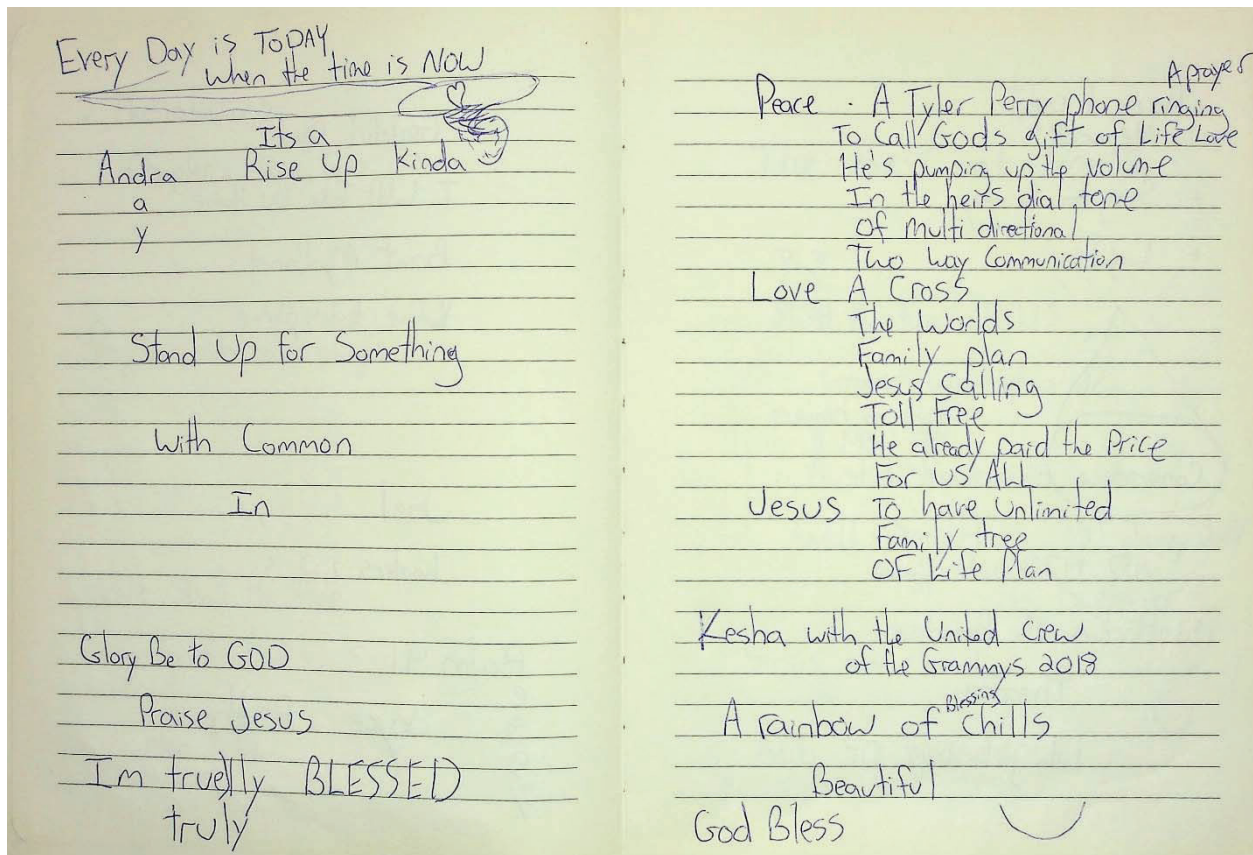 Every Day is TODAY
When the time is NOW
Its a
Andra Rise Up Kinda
a
y
Stand Up for Something
With Common
In
Glory Be to GOD
Praise Jesus
Im truelly BLESSED
truly
A prayer
Peace . A Tyler Perry phone ringing
To Call Gods gift of Life Love
He's pumping up the Volume
In the heirs dial tone
Of multi directional
Two Way Communication
Love A Cross
The Worlds
Family plan
Jesus Calling
Toll Free
He already paid the Price
For US ALL
Jesus To have Unlimited
Family tree
OF Life Plan
Kesha with the United Crew
of the Grammys 2018
Blessing
A rainbow of Chills
Beautiful
God Bless